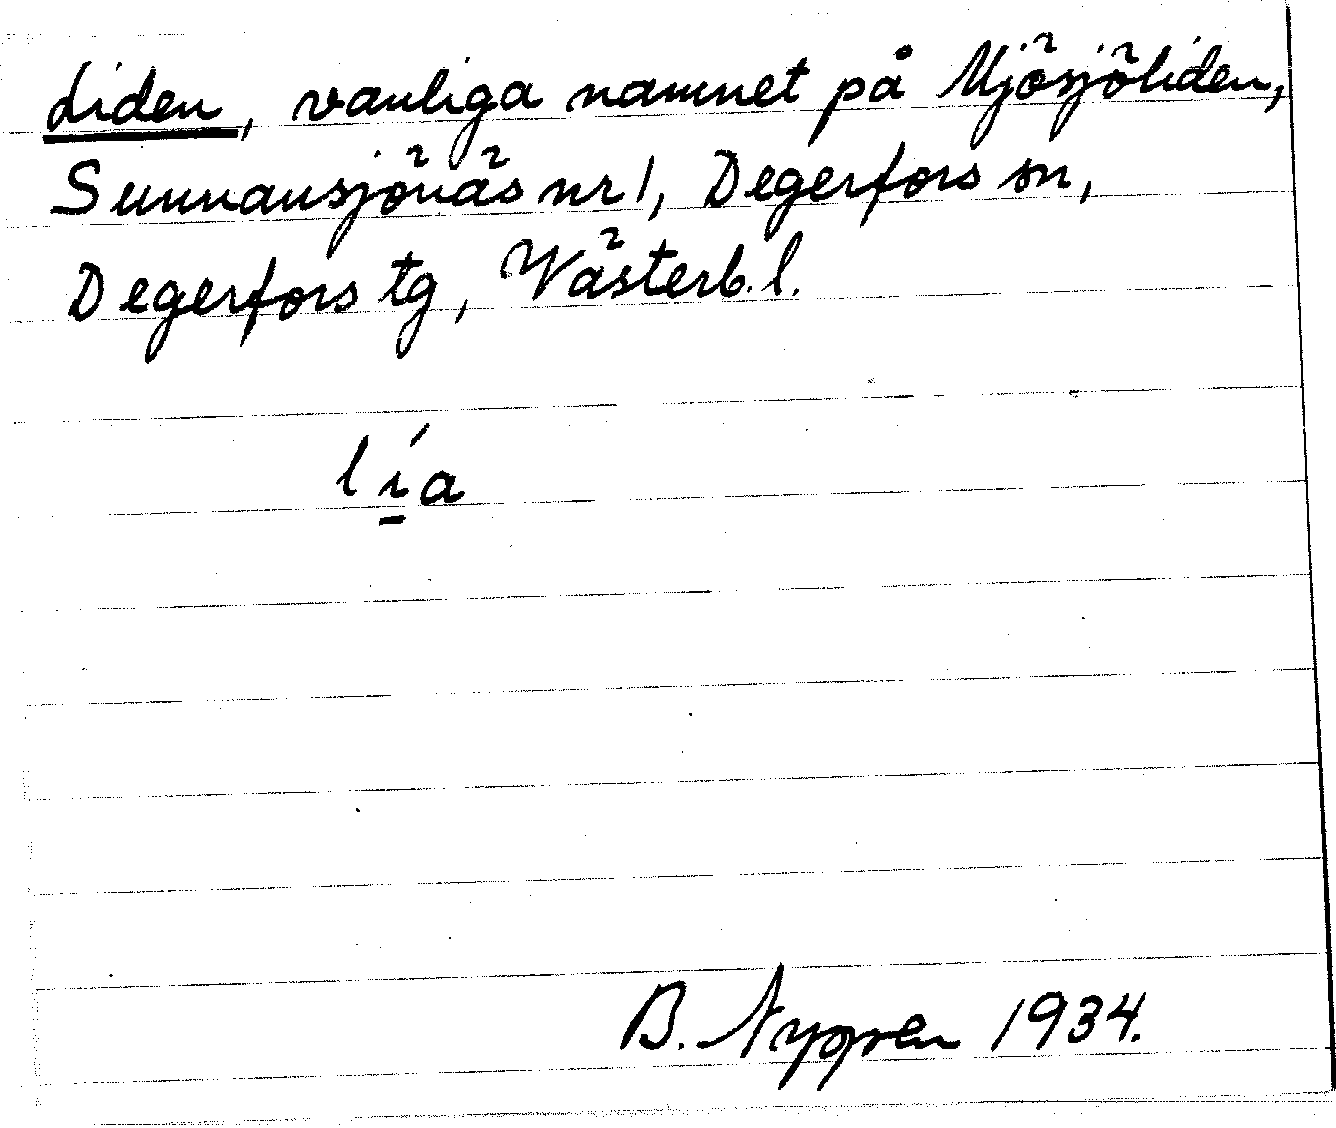 Liden, vanliga namnet på Mjösjöliden,
Sunnansjönäs nr 1, Degerfors sn,
Degerfors tg, Västerb. l.
lí̱a
B. 1934.